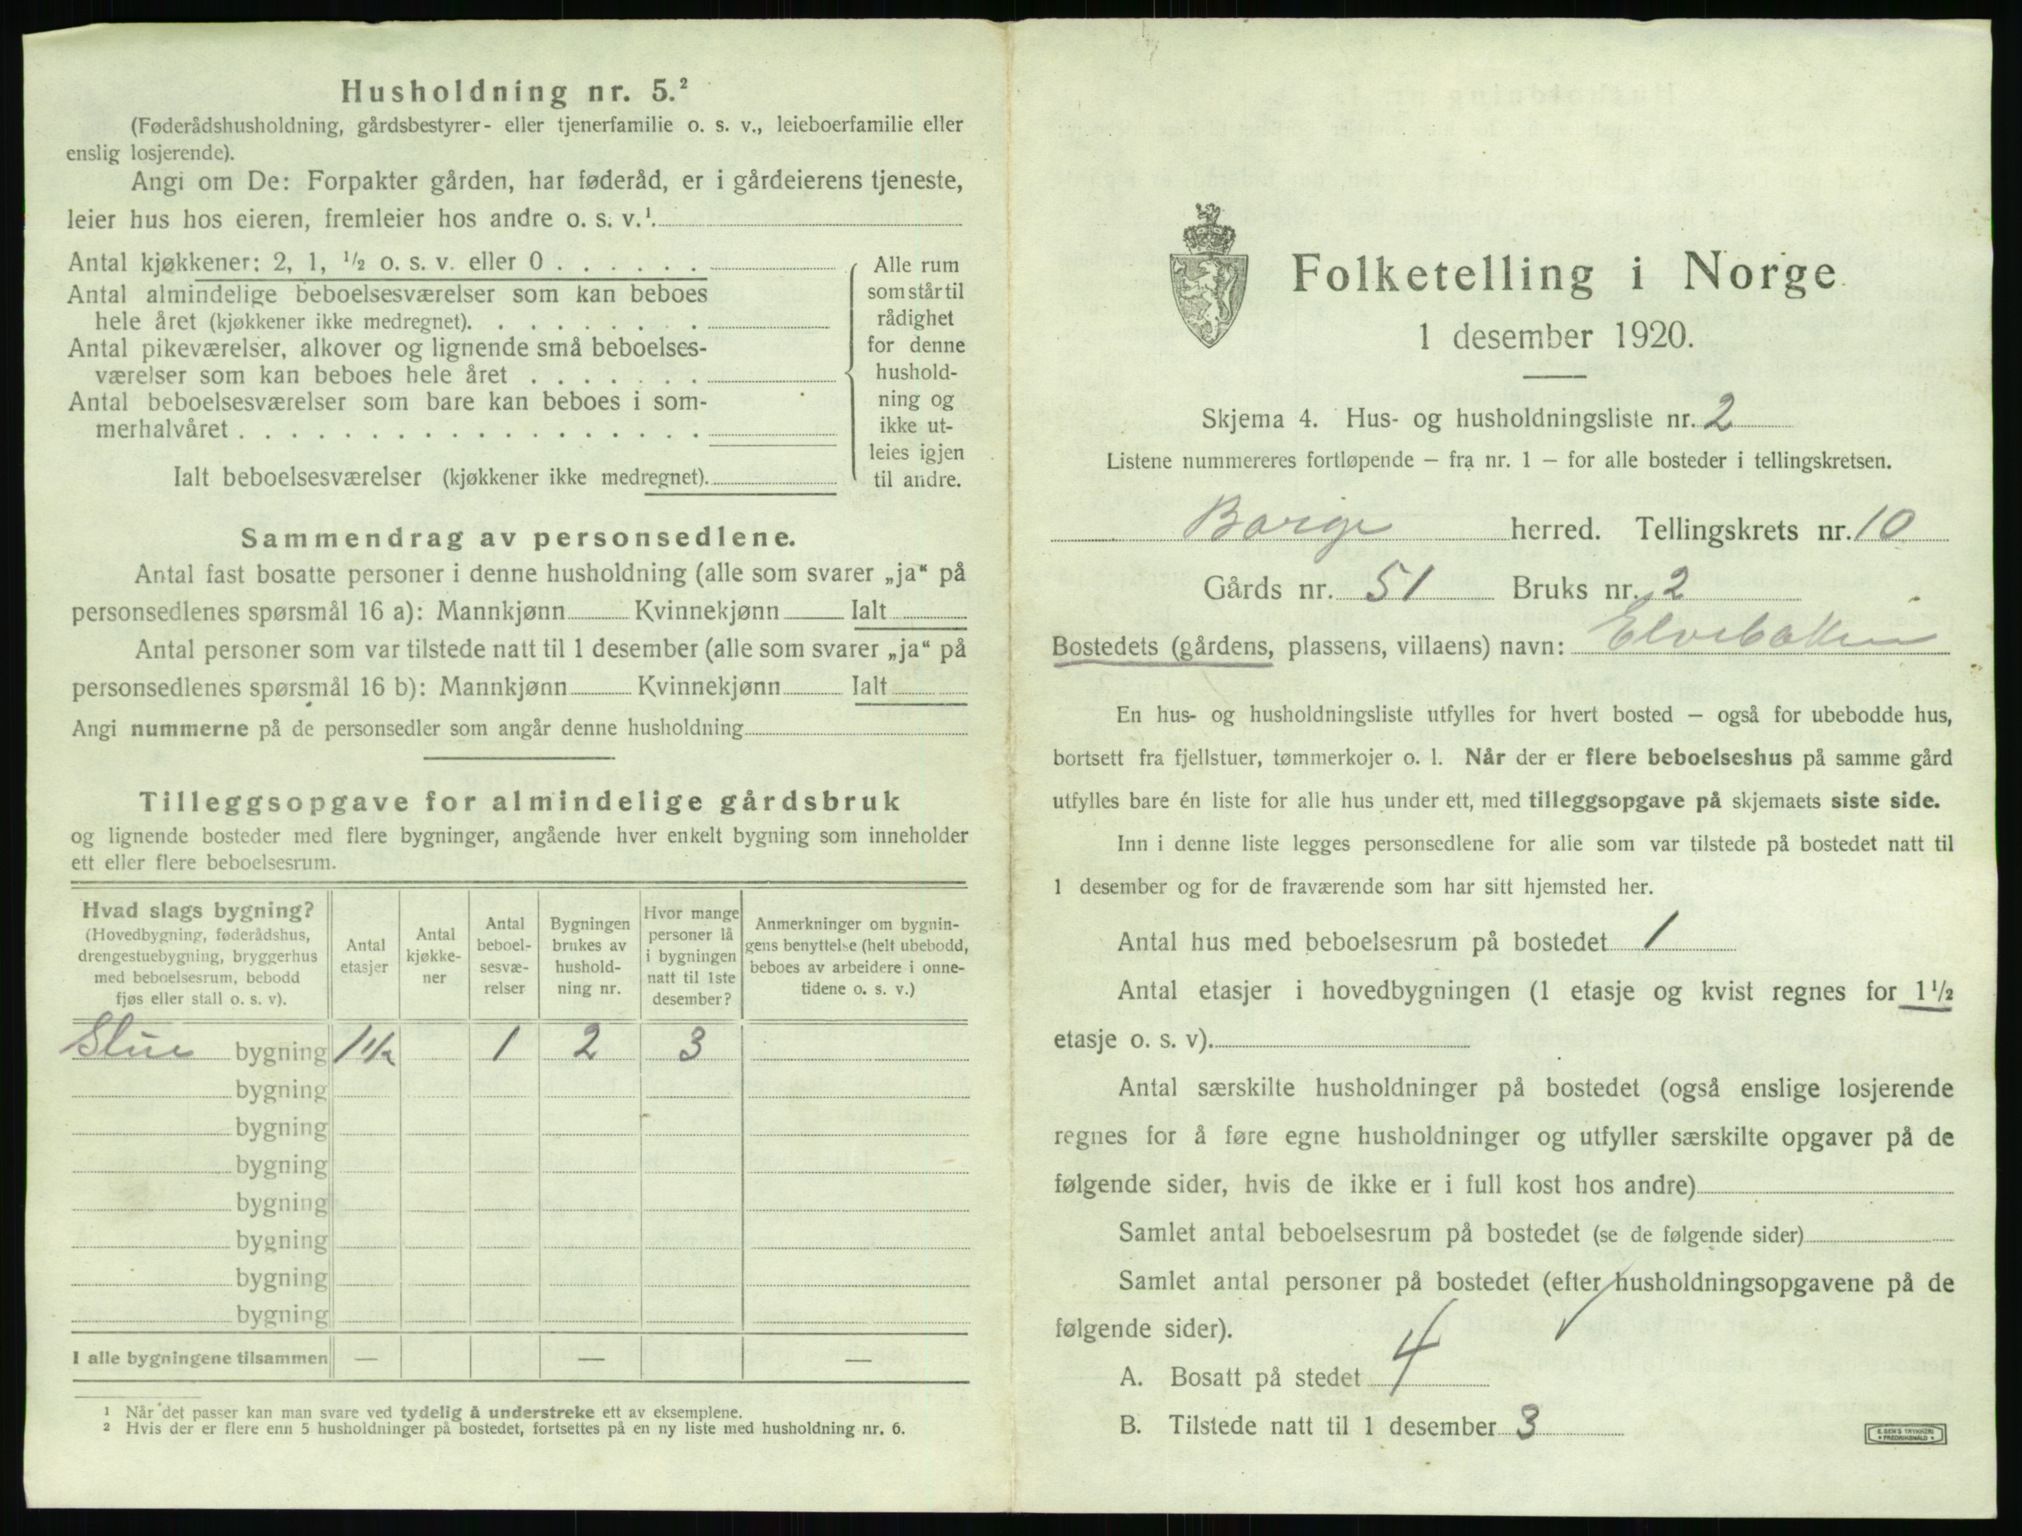 Husholdning nr. 5.²
(Føderådshusholdning, gårdsbestyrer- eller tjenerfamilie o. s. v., leieboerfamilie eller
enslig losjerende).
Angi om De: Forpakter gården, har føderåd, er i gårdeierens tjeneste,
leier hus hos eieren, fremleier hos andre o. s. v.¹
Antal kjøkkener: 2, 1, ½ o. s. v. eller 0
Antal almindelige beboelsesværelser som kan beboes
hele året (kjøkkener ikke medregnet).
Antal pikeværelser, alkover og lignende små beboelses-
værelser som kan beboes hele året
Antal beboelsesværelser som bare kan beboes i som-
merhalvåret
Ialt beboelsesværelser (kjøkkener ikke medregnet).
Alle rum
som står til
rådighet
for denne
hushold-
ning og
ikke ut-
leies igjen
til andre.
Sammendrag av personsedlene.
Antal fast bosatte personer i denne husholdning (alle som svarer „ja“ på
personsedlenes spørsmål 16 a): Mannkjønn Kvinnekjønn Ialt
Antal personer som var tilstede natt til 1 desember (alle som svarer „ja“ på
personsedlenes spørsmål 16 b): Mannkjønn Kvinnekjønn Ialt
Angi nummerne på de personsedler som angår denne husholdning
Tilleggsopgave for almindelige gårdsbruk
og lignende bosteder med flere bygninger, angående hver enkelt bygning som inneholder
ett eller flere beboelsesrum.
Hvad slags bygning?
(Hovedbygning, føderådshus,
drengestuebygning, bryggerhus
med beboelsesrum, bebodd
fjøs eller stall o. s. v).
Antal
etasjer
Antal
kjøkke-
ner
Antal
beboel-
sesvæ-
relser
Bygningen
brukes av
hushold-
ning nr.
Hvor mange
personer lå
i bygningen
natt til 1ste
desember?
Anmerkninger om bygnin-
gens benyttelse (helt ubebodd,
beboes av arbeidere i onne-
tidene o. s. v.)
Stue bygning 1 1/2 1 2 3
bygning
bygning
bygning
bygning
bygning
bygning
bygning
I alle bygningene tilsammen — — —
¹ Når det passer kan man svare ved tydelig å understreke ett av eksemplene.
² Hvis der er flere enn 5 husholdninger på bostedet, fortsettes på en ny liste med husholdning nr. 6.
Folketelling i Norge
1 desember 1920.
Skjema 4. Hus- og husholdningsliste nr. 2
Listene nummereres fortløpende — fra nr. 1 — for alle bosteder i tellingskretsen.
Borge herred. Tellingskrets nr. 10
Gårds nr. 51 Bruks nr. 2
Bostedets (gårdens, plassens, villaens) navn: Elvebakken
En hus- og husholdningsliste utfylles for hvert bosted — også for ubebodde hus,
bortsett fra fjellstuer, tømmerkojer o. l. Når der er flere beboelseshus på samme gård
utfylles bare én liste for alle hus under ett, med tilleggsopgave på skjemaets siste side.
Inn i denne liste legges personsedlene for alle som var tilstede på bostedet natt til
1 desember og for de fraværende som har sitt hjemsted her.
Antal hus med beboelsesrum på bostedet 1
Antal etasjer i hovedbygningen (1 etasje og kvist regnes for 1½
etasje o. s. v).
Antal særskilte husholdninger på bostedet (også enslige losjerende
regnes for å føre egne husholdninger og utfyller særskilte opgaver på de
følgende sider, hvis de ikke er i full kost hos andre)
Samlet antal beboelsesrum på bostedet (se de følgende sider)
Samlet antal personer på bostedet (efter husholdningsopgavene på de
følgende sider).
A. Bosatt på stedet 4
B. Tilstede natt til 1 desember 3
E. SEM'S TRYKKERI
FREDRIKSHALD